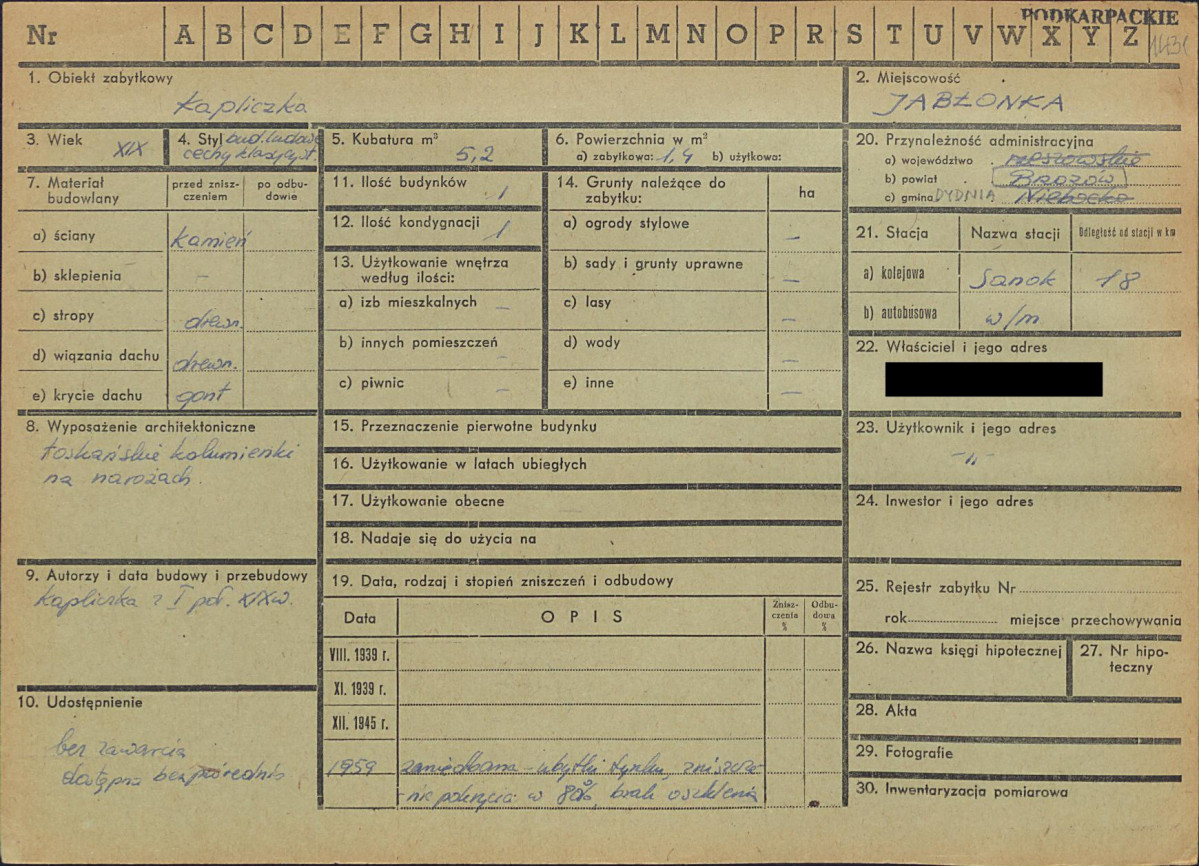 PODKARPACKIE
Nr A B C D E F G H I J K L M N O P R S T U V W X Y Z
1. Obiekt zabytkowy
Kapliczka
2. Miejscowość
JABŁONKA
3. Wiek
XIX
4. Styl bud. ludowe
cechy klasycyst.
5. Kubatura m³
5,2
6. Powierzchnia w m²
a) zabytkowa: 1,4 b) użytkowa:
20. Przynależność administracyjna
a) województwo rzeszowskie
b) powiat Brzozów
c) gmina DYDNIA Niebocko
7. Materiał budowlany
przed zniszczeniem
po odbudowie
a) ściany kamień
b) sklepienia –
c) stropy drewn.
d) wiązania dachu drewn.
e) krycie dachu gont
11. Ilość budynków 1
12. Ilość kondygnacji 1
13. Użytkowanie wnętrza
według ilości:
a) izb mieszkalnych –
b) innych pomieszczeń –
c) piwnic –
14. Grunty należące do
zabytku:
ha
a) ogrody stylowe –
b) sady i grunty uprawne –
c) lasy –
d) wody –
e) inne –
21. Stacja Nazwa stacji Odległość od stacji w km
a) kolejowa Sanok 18
b) autobusowa w/m
22. Właściciel i jego adres
8. Wyposażenie architektoniczne
toskańskie kolumienki
na narożach.
15. Przeznaczenie pierwotne budynku
16. Użytkowanie w latach ubiegłych
17. Użytkowanie obecne
18. Nadaje się do użycia na
23. Użytkownik i jego adres
-"-
24. Inwestor i jego adres
9. Autorzy i data budowy i przebudowy
Kapliczka z I poł. XIXw.
19. Data, rodzaj i stopień zniszczeń i odbudowy
Data OPIS Zniszczenia % Odbudowa %
VIII. 1939 r.
XI. 1939 r.
XII. 1945 r.
1959 zaniedbana – ubytki tynku, zniszcze-
-nie pokrycia w 80%, brak oszklenia
25. Rejestr zabytku Nr
rok miejsce przechowywania
26. Nazwa księgi hipotecznej
27. Nr hipo-
teczny
10. Udostępnienie
bez zawarcia
dostępna bezpośrednio
28. Akta
29. Fotografie
30. Inwentaryzacja pomiarowa